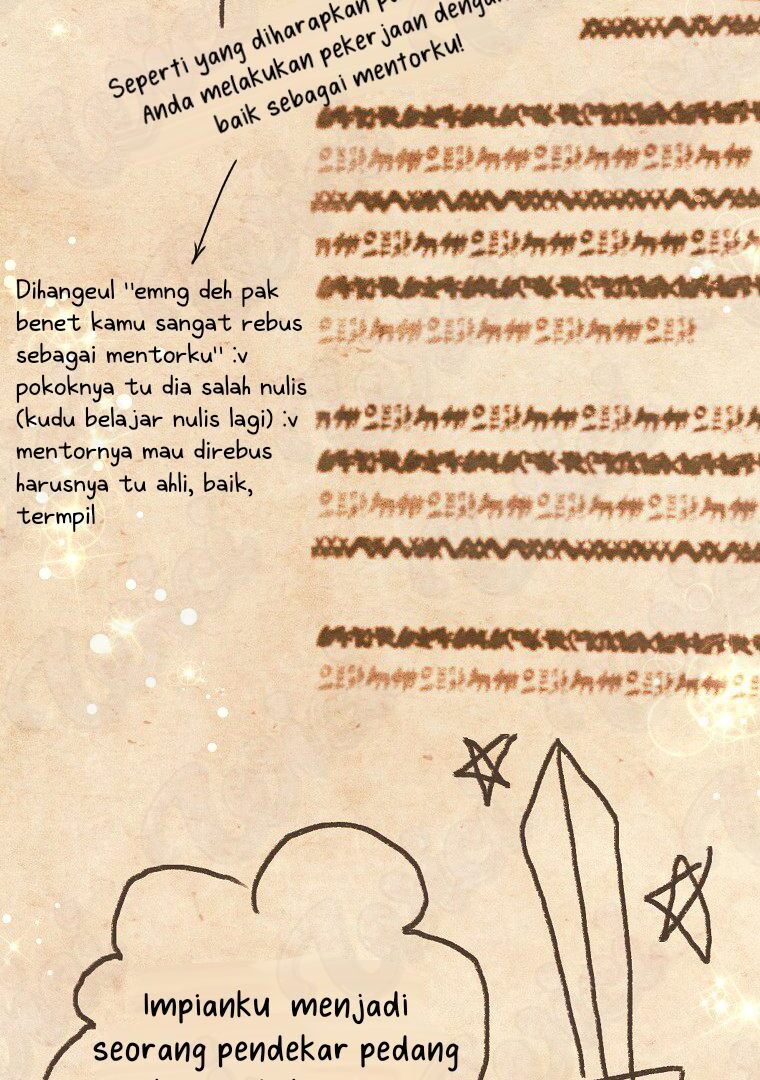 Seperti yang diharapkan
Anda melakukan pekerjaan dengan
baik sebagai mentorku!
Dihangeul "emng deh pak
benet kamu sangat rebus
sebagai mentorku" :v
pokoknya tu dia salah nulis
(kudu belajar nulis lagi) :v
mentornya mau direbus
harusnya tu ahli, baik,
termpil
Impianku menjadi
seorang pendekar pedang